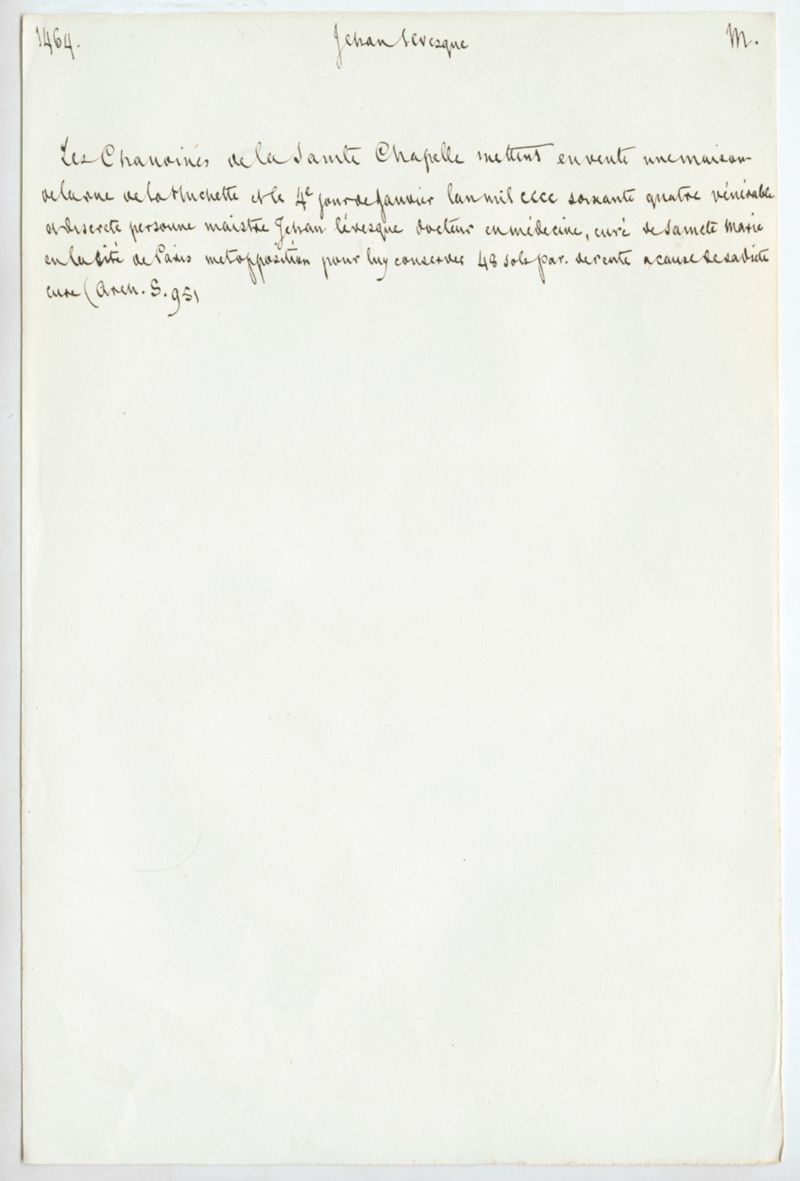 1464. Jehan levesque M.
Les Chanoines de la Sainte Chapelle mettent en vente une maison
de la rue de la Huchette et le 4e jour de Janvier lan mil cccc soixante quatre vénérable
et discrete personne maistre Jehan lévesque docteur en médecine, curé de Saincte Marie
en la Cité de Paris met opposition pour luy conserver 48 sols par. de rente a cause de sa dicte
cure (Arch. S. 951